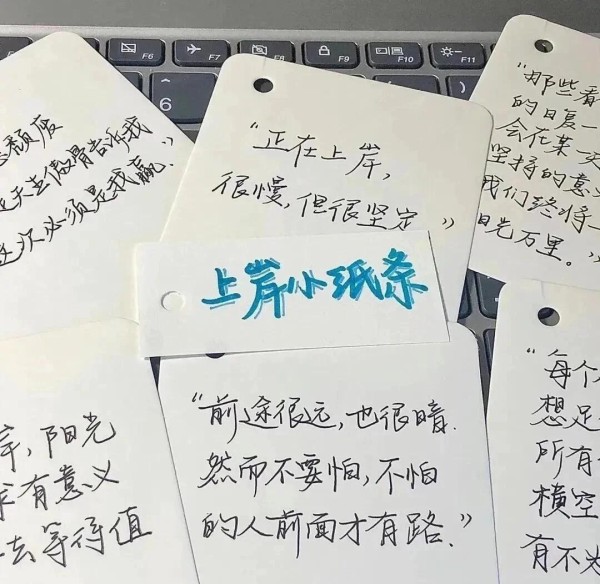 F6
F7
F8
F9
F10
F11
6
颓废
告诉我
这次必须是我赢."
"正在上岸,
很慢,但很坚定."
"那些看
的日复一
会在某一天
坚持的意义
我们终将
阳光万里。"
上岸小纸条
阳光
有意义
去等待值
"前途很远,也很暗.
然而不要怕,不怕
的人前面才有路."
"每个
想足
所有
横空
有不为